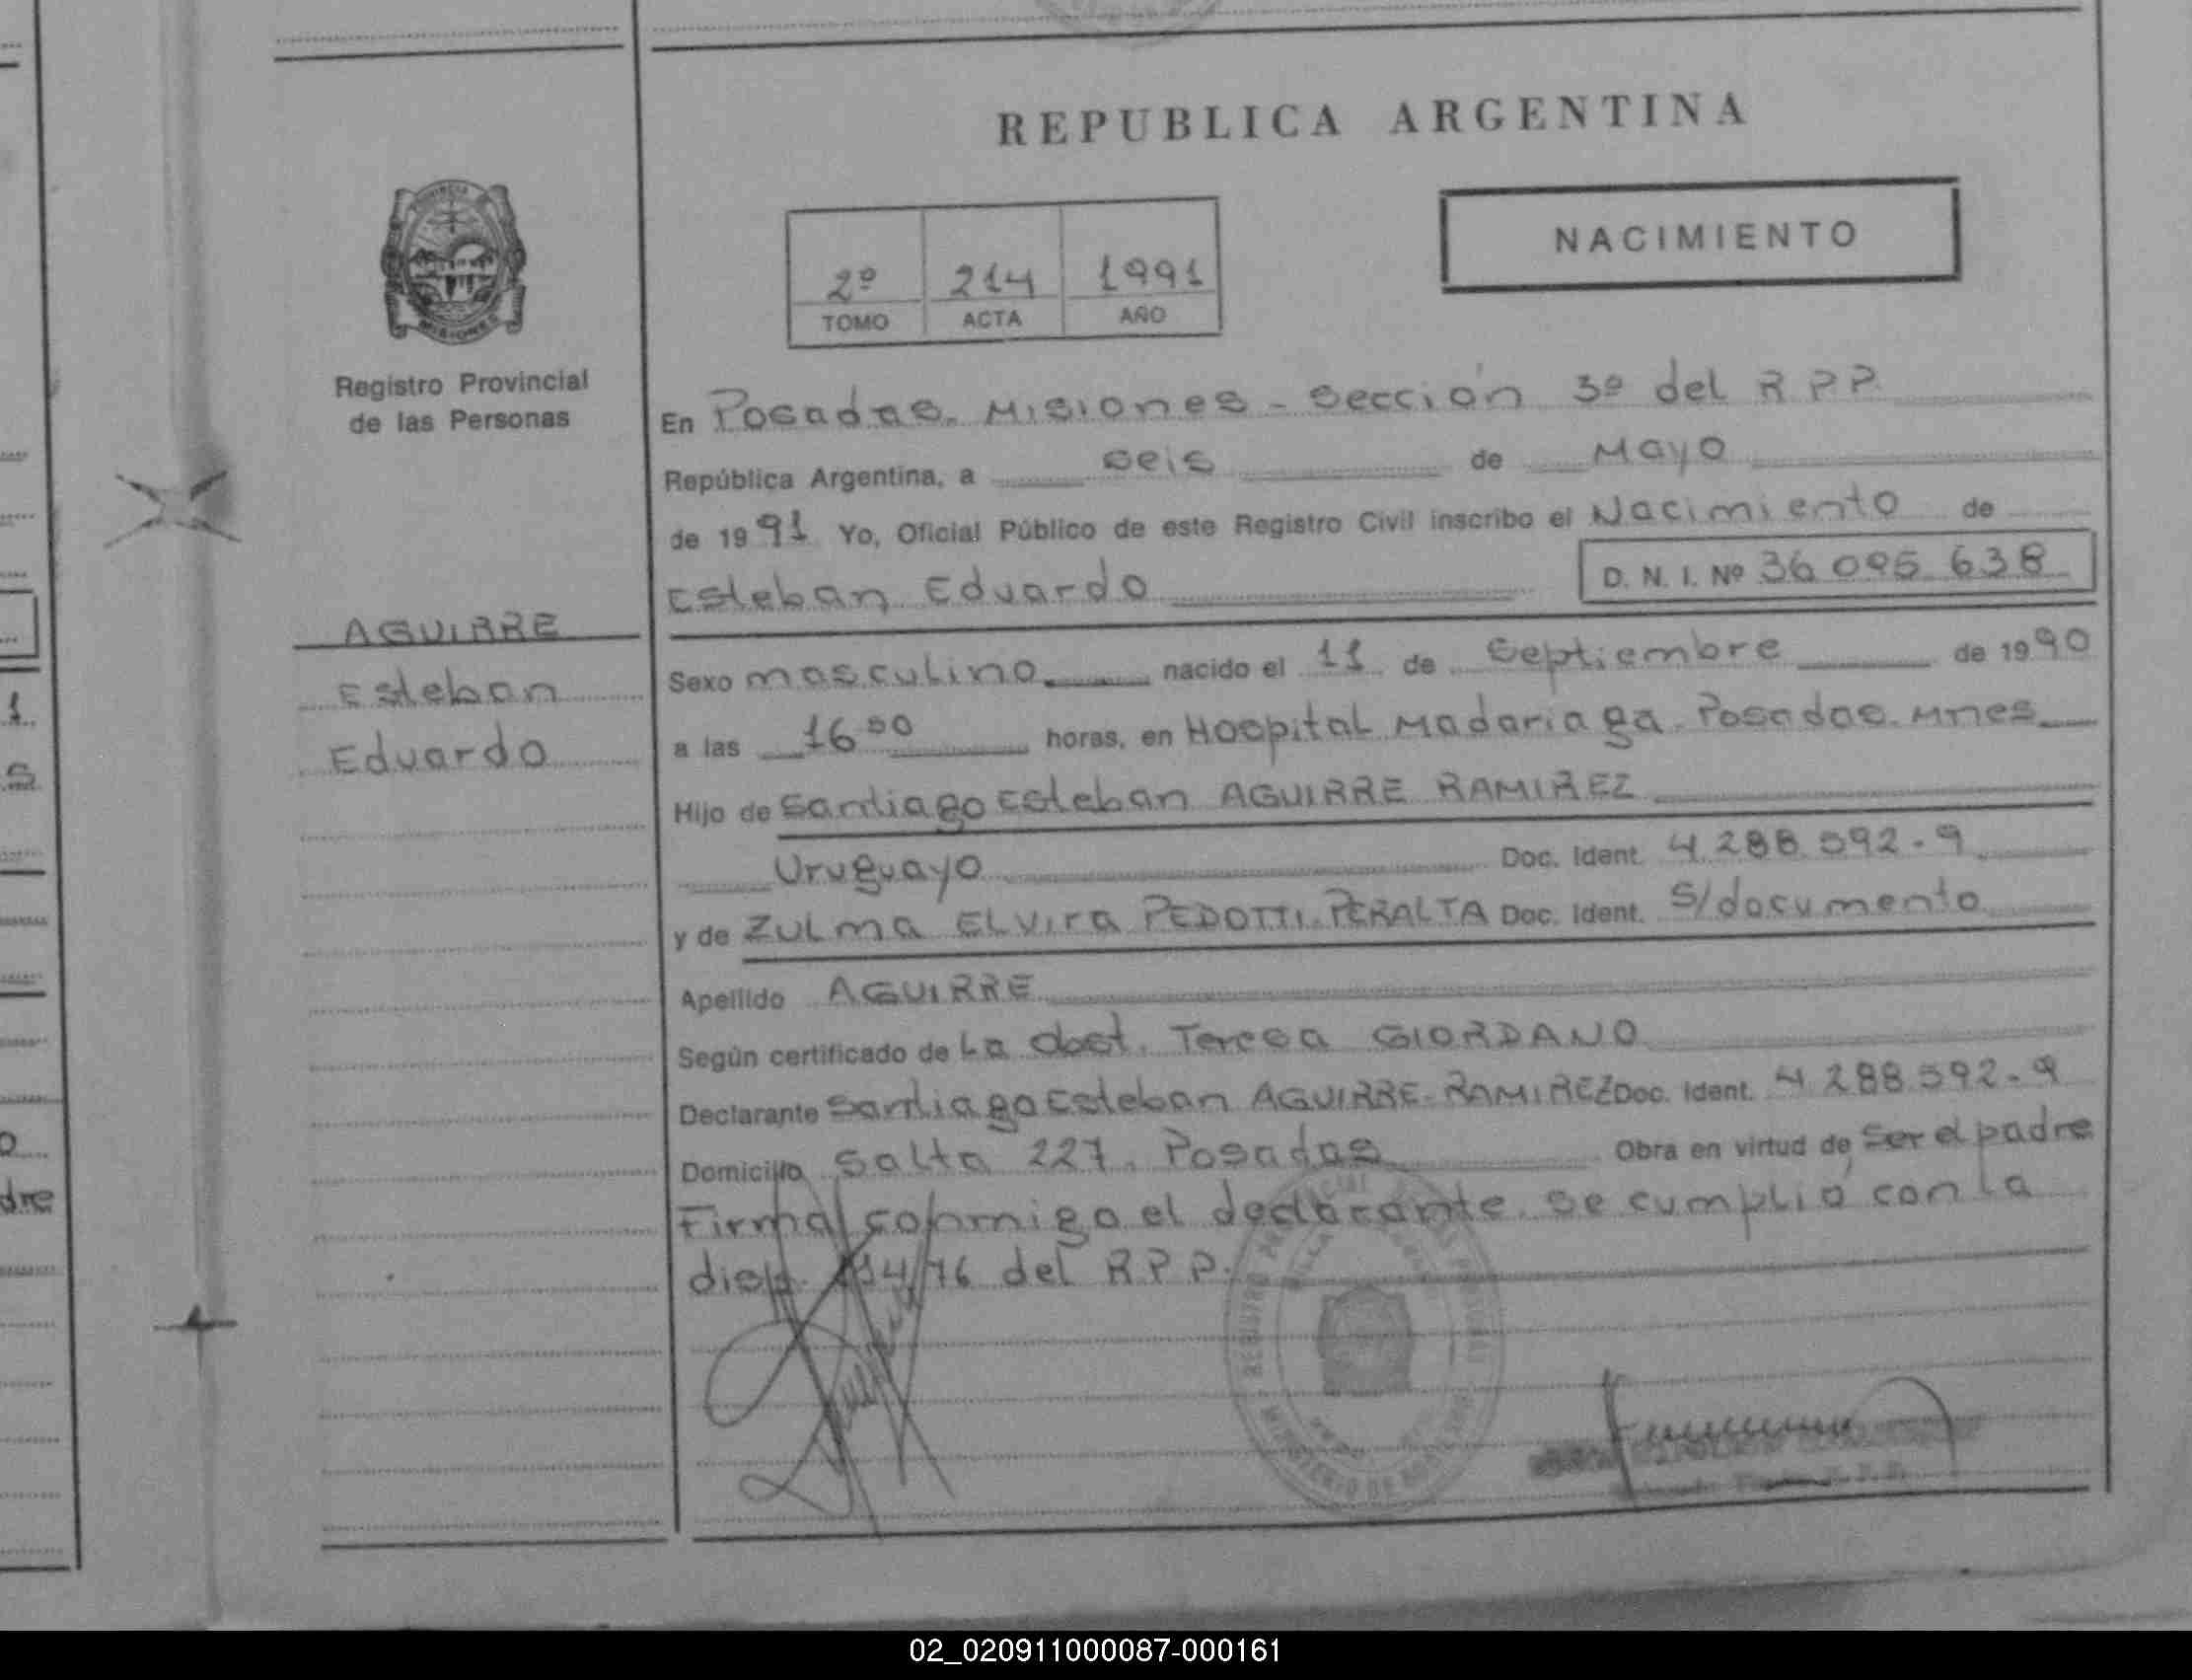 REPUBLICA ARGENTINA
NACIMIENTO
2º 214 1991
TOMO ACTA AÑO
MISIONES
Registro Provincial
de las Personas
AGUIRRE
Esteban
Eduardo
En Posadas. Misiones - Sección 3º del R P P.
República Argentina, a seis de Mayo
de 1991 Yo, Oficial Público de este Registro Civil inscribo el Nacimiento de
Esteban Eduardo D. N. I. Nº 36 095 638
Sexo masculino. nacido el 11 de Septiembre de 1990
a las 16⁵⁰ horas, en Hospital Madariaga. Posadas. Mnes.
Hijo de Santiago Esteban AGUIRRE RAMIREZ
Uruguayo Doc. Ident. 4.288.592-9
y de Zulma ELvira PEDOTTI-PERALTA Doc. Ident. S/documento
Apellido AGUIRRE
Según certificado de La obst. Teresa GIORDANO
Declarante Santiago Esteban AGUIRRE-RAMIREZ Doc. Ident. 4.288.592-9
Domicilio Salta 227. Posadas Obra en virtud de Ser el padre
Firma conmigo el declarante. Se cumplió con la
disp. /76 del R.P.P.
02_020911000087-000161